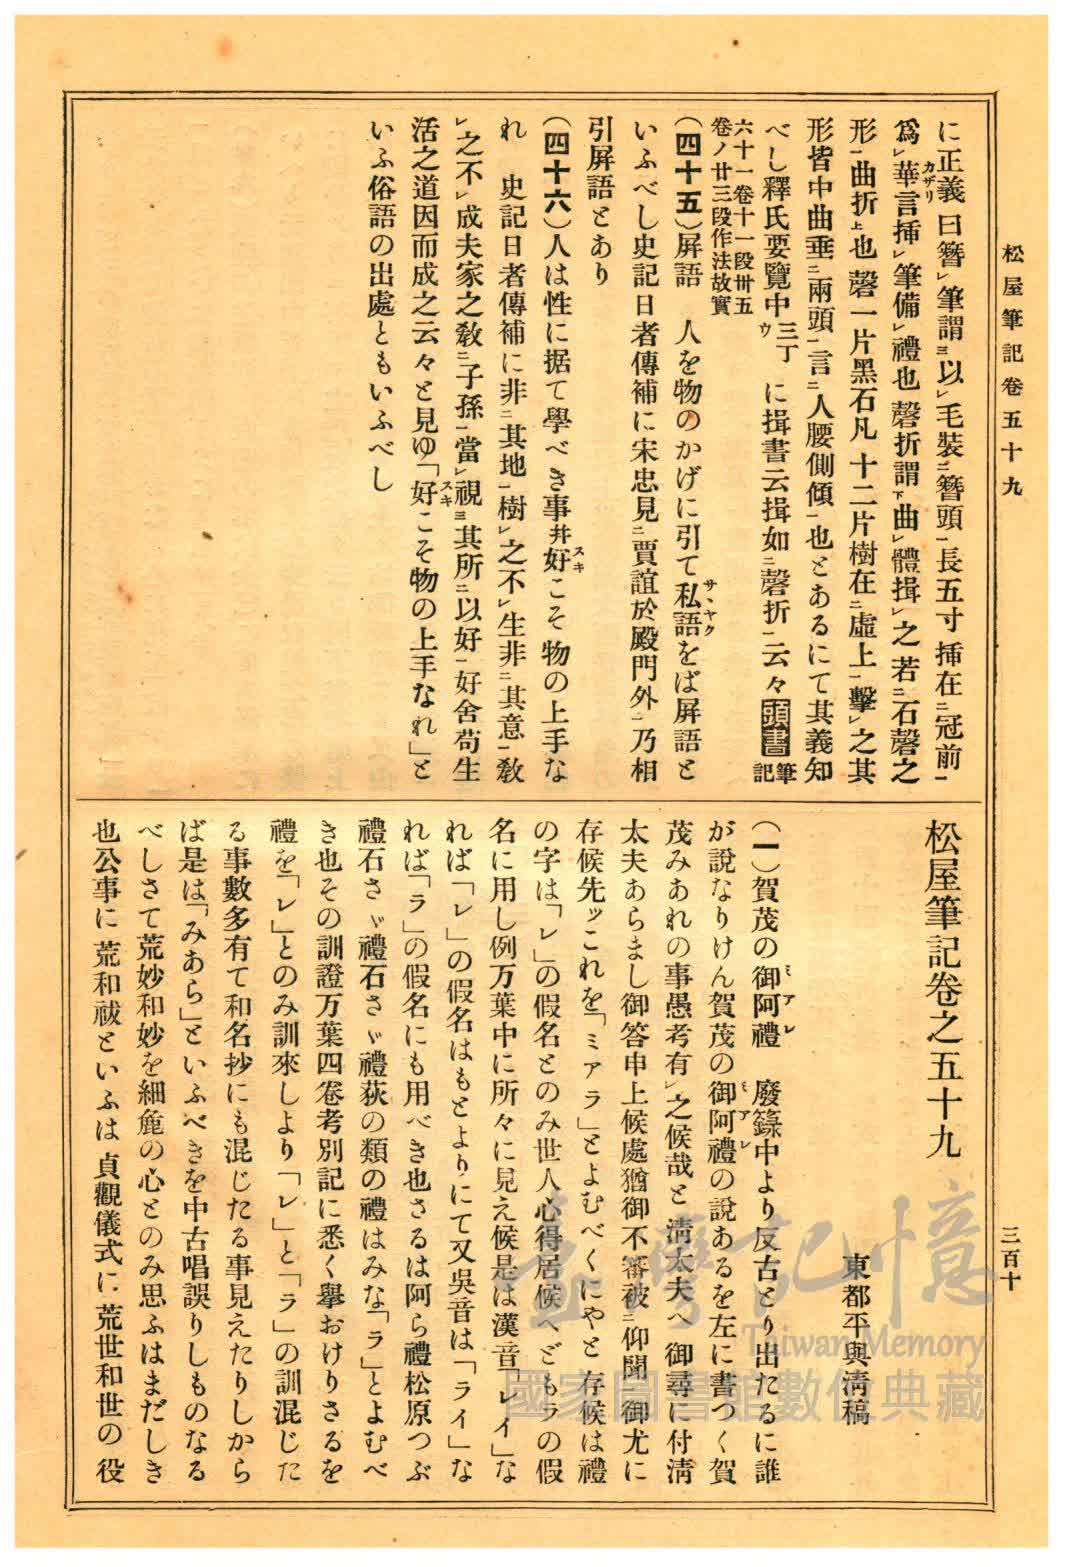 松屋筆記卷五十九
三百十
に正義曰簪レ筆謂三以レ毛裝二簪頭一長五寸挿在二冠前一
爲レ華言挿レ筆備レ禮也磬折謂下曲レ體揖レ之若二石磬之
カザリ
形一曲折上也磬一片黑石凡十二片樹在二虛上一擊レ之其
形皆中曲垂二兩頭一言二人腰側傾一也とあるにて其義知
べし釋氏要覽中三丁ウに揖書云揖如二磬折一云々頭書筆記
六十一卷十一段卅五
卷ノ廿三段作法故實
(四十五)屛語 人を物のかげに引て私語をば屛語と
サヽヤク
いふべし史記日者傳補に宋忠見二賈誼於殿門外一乃相
引屛語とあり
(四十六)人は性に据て學べき事幷好こそ物の上手な
スキ
れ 史記日者傳補に非二其地一樹レ之不レ生非二其意一敎
レ之不レ成夫家之敎二子孫一當レ視三其所二以好一好舍苟生
活之道因而成之云々と見ゆ「好こそ物の上手なれ」と
スキ
いふ俗語の出處ともいふべし
松屋筆記卷之五十九
東都平與淸稿
(一)賀茂の御阿禮 廢簶中より反古とり出たるに誰
ミアレ
が說なりけん賀茂の御阿禮の說あるを左に書つく賀
ミアレ
茂みあれの事愚考有レ之候哉と淸太夫へ御尋に付淸
太夫あらまし御答申上候處猶御不審被二仰聞一御尤に
存候先ッこれを「ミアラ」とよむべくにやと存候は禮
の字は「レ」の假名とのみ世人心得居候へどもラの假
名に用し例万葉中に所々に見え候是は漢音「レイ」な
れば「レ」の假名はもとよりにて又吳音は「ライ」な
れば「ラ」の假名にも用べき也さるは阿ら禮松原つぶ
禮石さゞ禮石さゞ禮荻の類の禮はみな「ラ」とよむべ
き也その訓證万葉四卷考別記に悉く擧おけりさるを
禮を「レ」とのみ訓來しより「レ」と「ラ」の訓混じた
る事數多有て和名抄にも混じたる事見えたりしから
ば是は「みあら」といふべきを中古唱誤りしものなる
べしさて荒妙和妙を細麁の心とのみ思ふはまだしき
也公事に荒和祓といふは貞觀儀式に荒世和世の役
臺灣記憶
Taiwan Memory
國家圖書館數位典藏